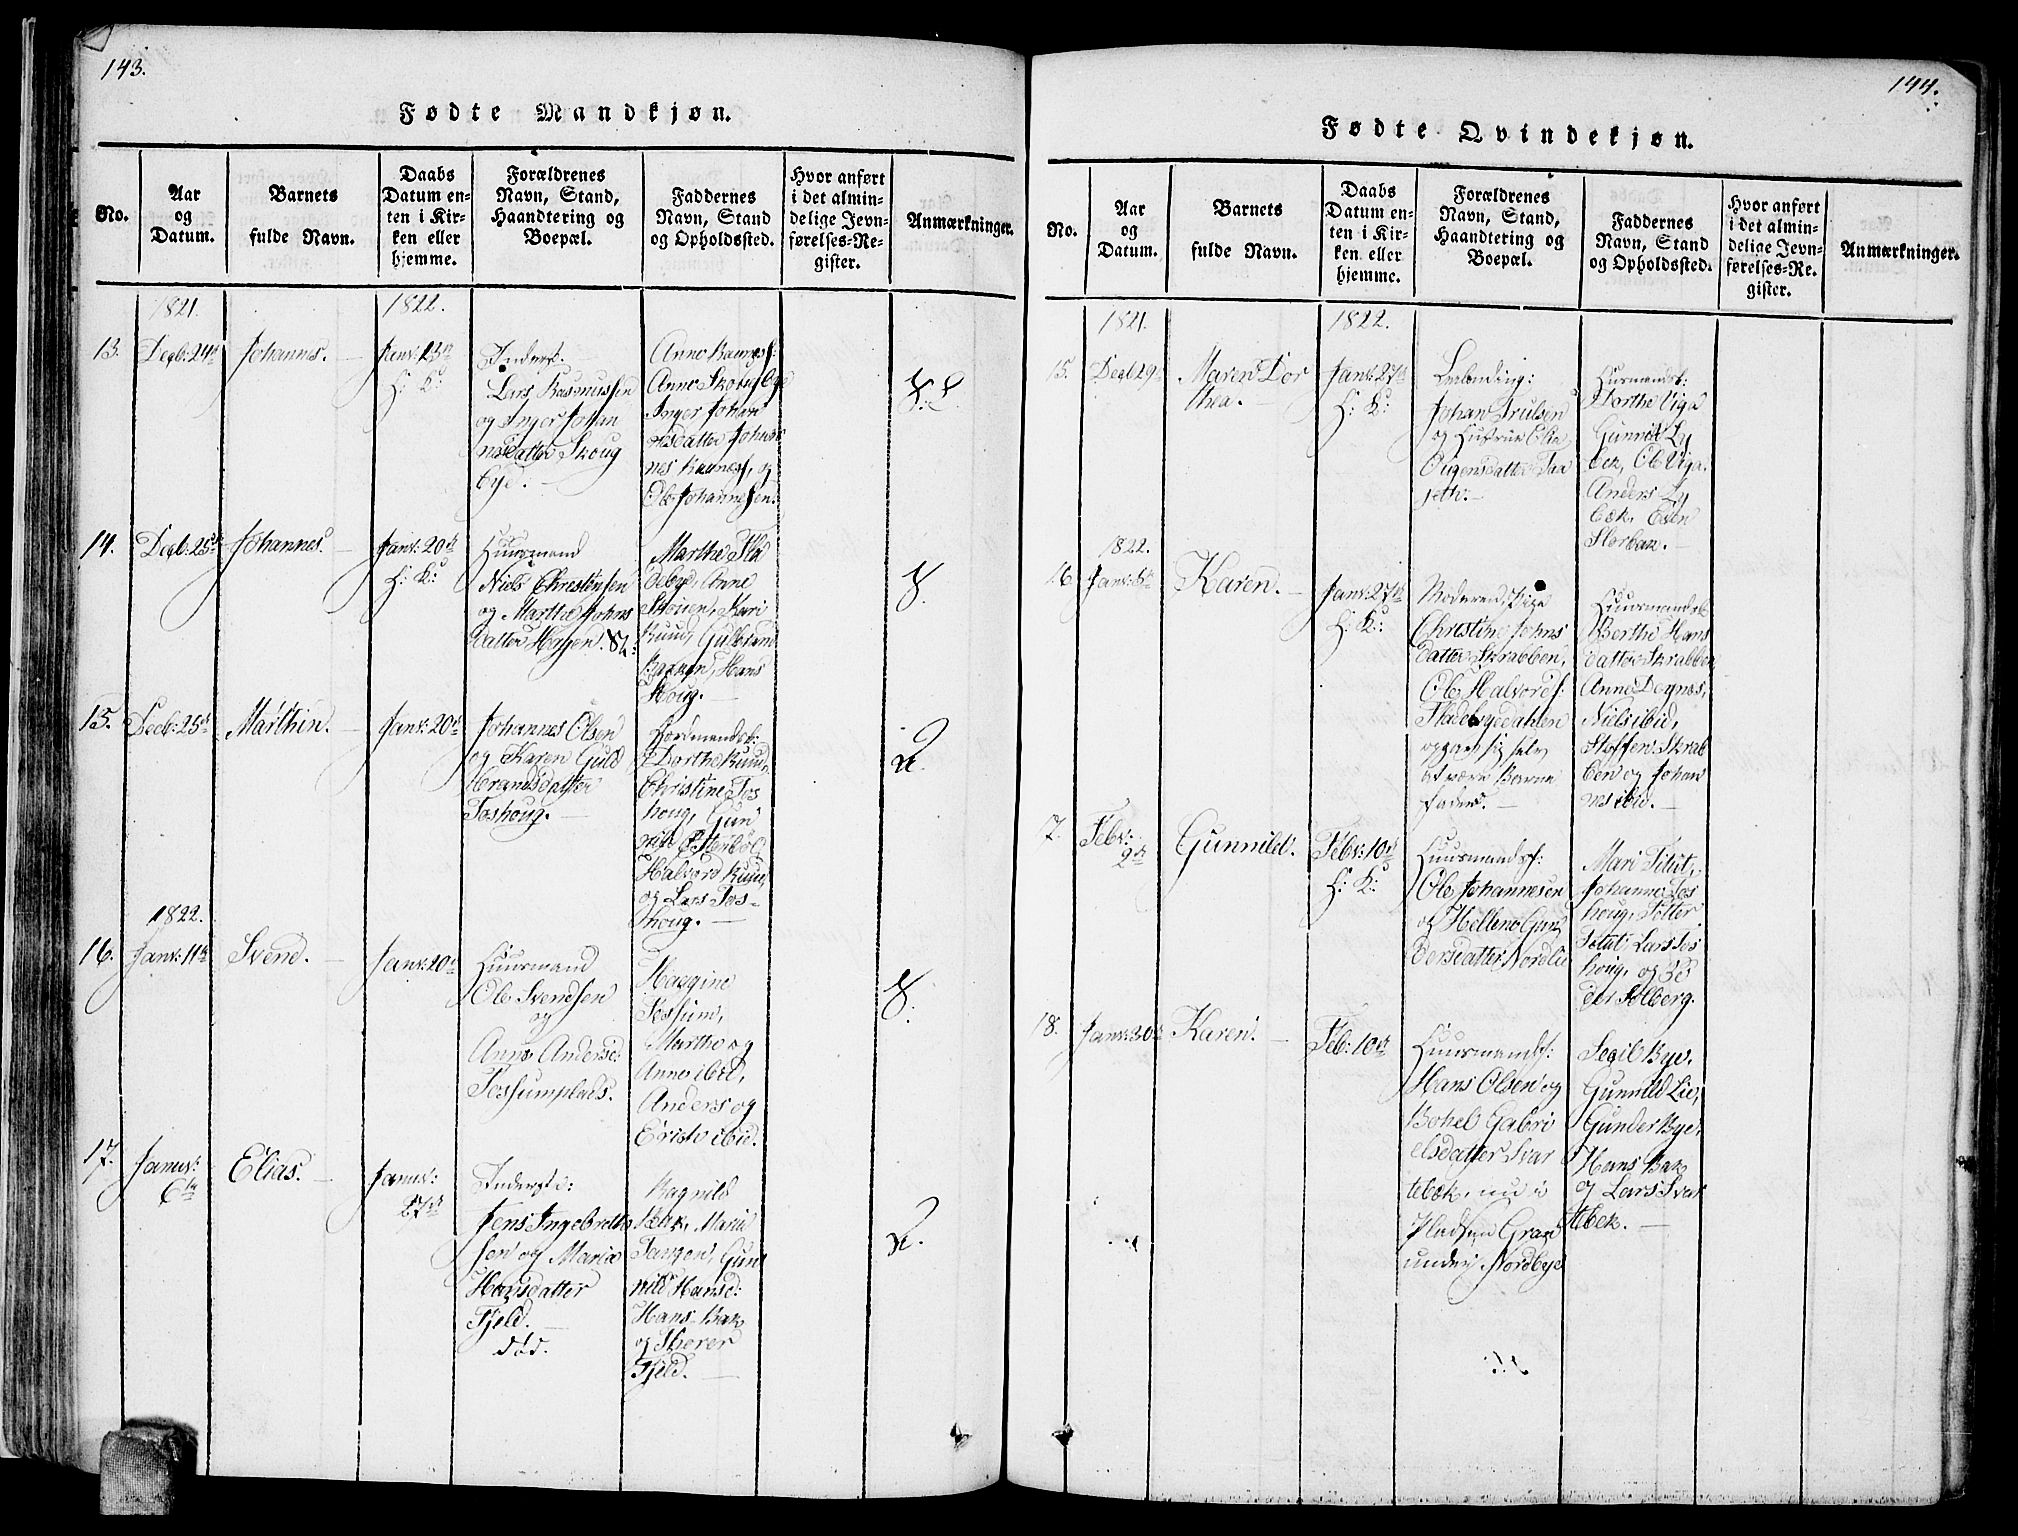 143.
Fødte Mandkjøn.
No.
Aar
og
Datum.
Barnets
fulde Navn.
Daabs
Datum en-
ten i Kir-
ken eller
hjemme.
Forældrenes
Navn, Stand,
Haandtering og
Boepæl.
Faddernes
Navn, Stand
og Opholdssted.
Hvor anført
i det almin-
delige Jevn-
førelses-Re-
gister.
Anmærkninger.
1821.
1822.
13.
Decb: 24de
Johannes.
H: K:
Inderst.
Lars Rasmussen
og Inger Johan
nsdatter Skoug
bye.
Inger Johan
nesdatter Johan
Ole Johannesen.
14.
Decb: 25de
Johannes.
Janv: 20de
H: K:
Huusmand
Niels Christensen
og Marthe Johns
datter Hagen.
Marthe Fla
debye, Anne
Skouen, Kari
Ruud, Gulbrand
Bakken, Hans
Skoug.
15.
Decb: 25de
Marthin.
Janv: 20de
Johannes Olsen
og Karen Guld
brandsdatter
Toshoug.
Dorthe Ruud,
Christine Tos
houg, Gun
Halvord Ruud,
og Lars Tos-
houg.
1822.
16.
Janv: 11te
Svend.
Janv: 20de
Huusmand
Ole Svendsen
og
Anne Andersd:
Fossumplads.
Fossum,
Marthe og
Anne ibid,
Anders og
Erich ibid.
17.
Januv:
6te
Elias.
Januv:
27de
Inderst:
Jens Ingebreth
sen og Marie
Hansdatter
Fjeld.
død.
Ragnild
Bak, Marie
Tangen, Gun
nild Hansd:
Hans Bak
og
Fjeld.
144.
Fødte Qvindekjøn.
No.
Aar
og
Datum.
Barnets
fulde Navn.
Daabs
Datum en-
ten i Kir-
ken eller
hjemme.
Forældrenes
Navn, Stand,
Haandtering og
Boepæl.
Faddernes
Navn, Stand
og Opholdssted.
Hvor anført
i det almin-
delige Jevn-
førelses-Re-
gister.
Anmærkninger.
1821.
1822.
15.
Decb 29de
Maren Dor
thea.
Janv: 27de
H: K:
Leilending:
Johan Trulsen
og Hustrue
Dorthe Viga
Gunnil Ly
bek, Ole Viga.
Anders Ly
bek,
1822.
16
Karen.
Janv: 27de
H: K:
Moderen, Pige
Christine Johns
datter Skrabben,
Ole Halvords:
Fladebyedahlen
opgav sig selv
at være Barne
fader.
Berthe Hans
datter Skrabben
Anne
Niels ibid,
Stoffen Skrab
ben og Johan
nes ibid.
7.
Febv:
9de
Gunnild.
Febv: 10de
H: K:
Huusmands:
Ole Johannesen
og Hellene Gun
dersdatter Nordlie
Mari Tutut,
Johanne Tos
houg, Petter
Tutut, Lars Tos
houg, og Pe
der Solberg.
18.
Janv: 30te
Karen.
Feb: 10de
Huusmands:
Hans Olsen og
Bohel Gabri
elsdatter Svar
tebek, nu i
Pladsen Gran
under Nordbye
Segil Bye,
Gunnild Lie,
Gunder Bye,
Hans Bak
og Lars Svar
tebek.